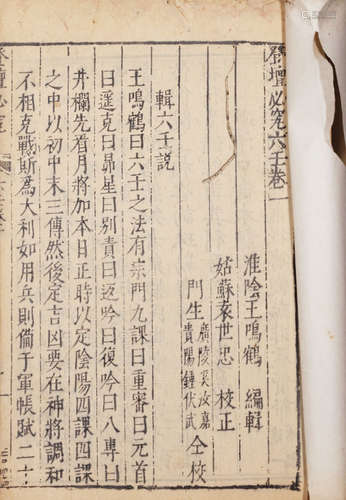 登壇必究六壬卷一
淮陰王鳴鶴 編輯
姑蘇袁世忠 校正
門生廣陵奚汝嘉貴陽鍾伏武 仝校
輯六壬說
王鳴鶴曰六壬之法有宗門九課曰重審曰元首
曰遥克曰昴星曰别責曰返吟曰復吟曰八專曰
井欄先看月將加本日正時以定陰陽四課四課
之中以初中末三傳然後定吉凶要在神將調和
不相克戰斯爲大利如用兵則備于軍帳賦二六
登壇必究